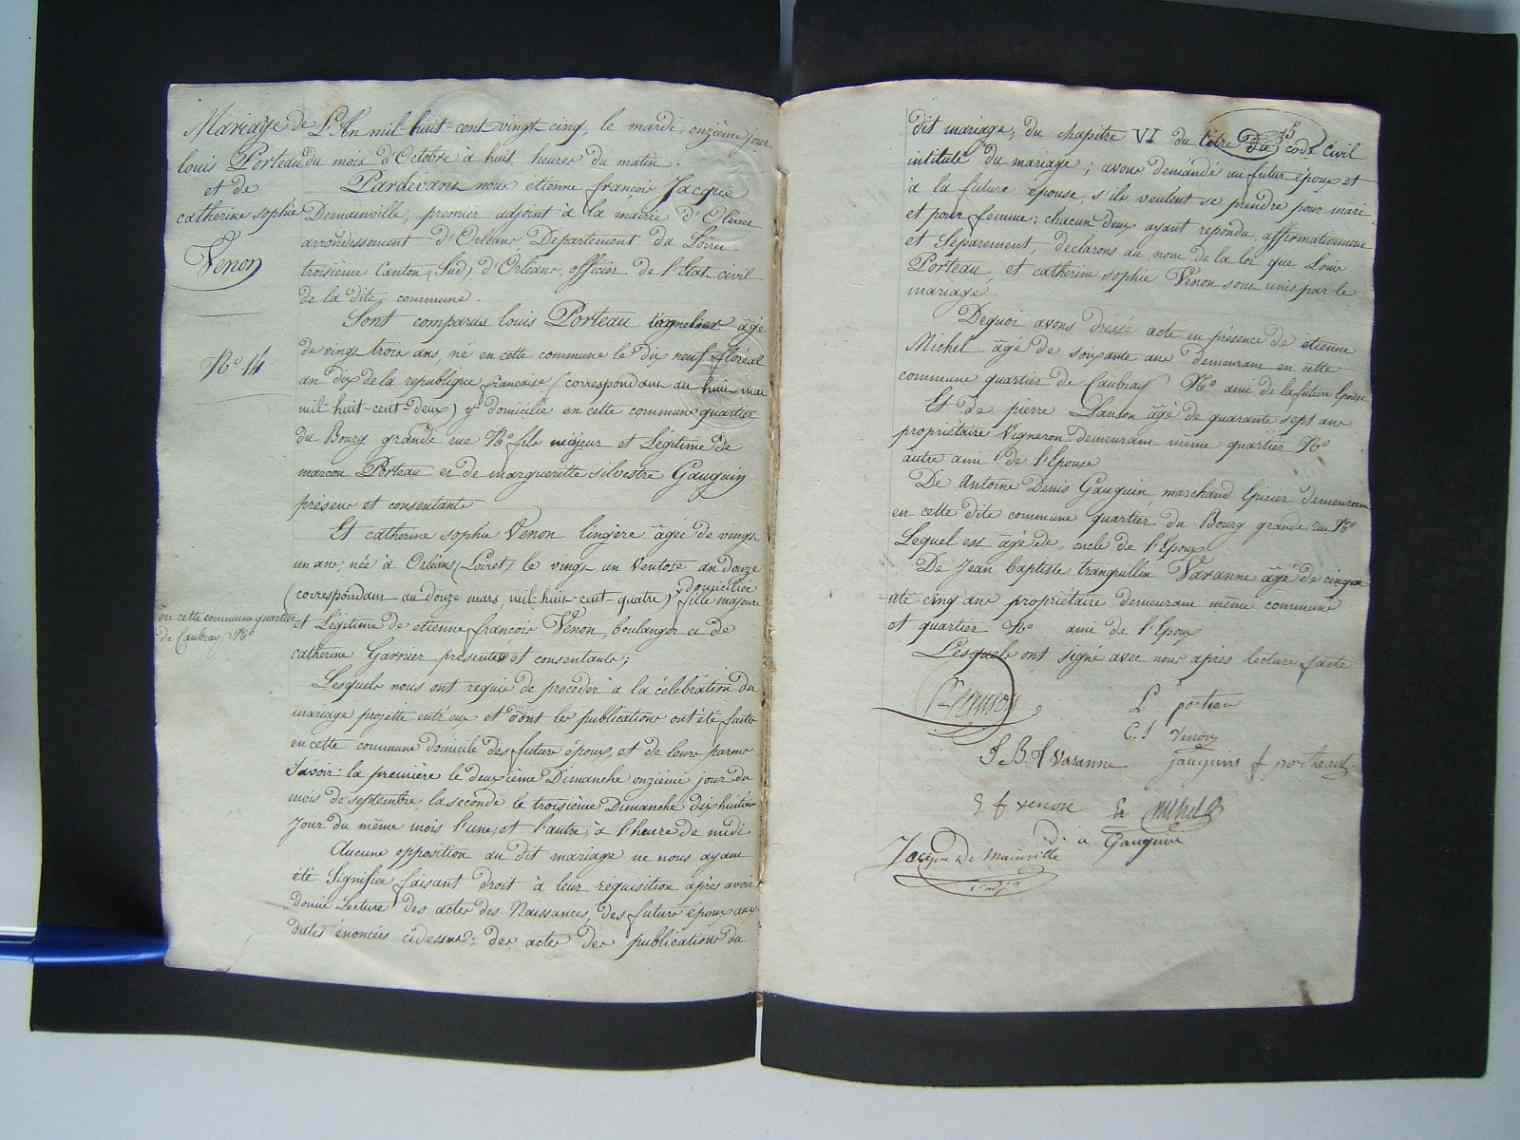 Mariage de
louis Porteau
et de
catherine sophie
Venon
N.o 14
en cette commune quartier
de Caubray N.o
L'An mil-huit-cent vingt cinq, le mardi onzième jour
du mois d'Octobre à huit heures du matin.
Pardevant nous etienne françois Jacque
Demainville, premier adjoint à la mairie d'Olivet
arrondissement d'Orléans Département du Loiret
troisième Canton (Sud) d'Orléans, officier de l'Etat civil
de la dite commune.
Sont comparus louis Porteau âgé
de vingt trois ans, né en cette commune le dix neuf floréal
an dix de la republique française (correspondant au huit mai
mil-huit-cent-deux) y domicilié en cette commune quartier
du Bourg grande rue N.o fils majeur et Légitime de
Porteau et de margueritte silvestre Gauguin
présens et consentants
Et catherine sophie Venon lingère âgée de vingt
un ans, née à Orléans (Loiret) le vingt un Ventose an douze
(correspondant au douze mars mil-huit-cent-quatre) domiciliée
fille majeure
et Légitime de etienne françois Venon boulanger et de
catherine Garnier présents et consentants;
Lesquels nous ont requis de procéder à la célébration du
mariage projetté entr'eux et dont les publications ont été faites
en cette commune domicile des futurs époux, et de leurs parens
Savoir: la première le deuxième Dimanche onzième jour du
mois de septembre, la seconde le troisième Dimanche dix huitième
Jour du même mois l'une et l'autre à l'heure de midi
Aucune opposition au dit mariage ne nous ayant
été Signifiée faisant droit à leur réquisition après avoir
donné Lecture des actes des Naissances, des futurs époux aux
dates énoncées cidessus; des actes des publications du
5
dit mariage, du chapitre VI du titre du code Civil
intitulé du mariage; avons demandé au futur époux et
à la future épouse, s'ils veulent se prendre pour mari
et pour femme; chacun d'eux ayant répondu affirmativement
et Séparement, declarons au nom de la loi que Louis
Porteau et catherine sophie Venon sont unis par le
mariage
Dequoi avons dressé acte en présence de etienne
Michel âgé de soixante ans demeurant en cette
commune quartier de Caubray N.o ami de la future Epouse
Et de pierre âgé de quarante sept ans
propriétaire Vigneron demeurant même quartier N.o
autre ami de l'Epouse
De Antoine Denis Gauguin marchand Epicier demeurant
en cette dite commune quartier du Bourg grande rue N.o
Lequel est âgé de oncle de l'Epoux
De Jean baptiste tranquillin Varanne âgé de cinqu
ate cinq ans propriétaire demeurant même commune
et quartier N.o ami de l'Epoux
Lesquels ont signé avec nous après lecture faite
L porteau
C. S Venon
J B. t Varanne
E f venon
Et michel
d. a Gauguin
Jacque de Mainville